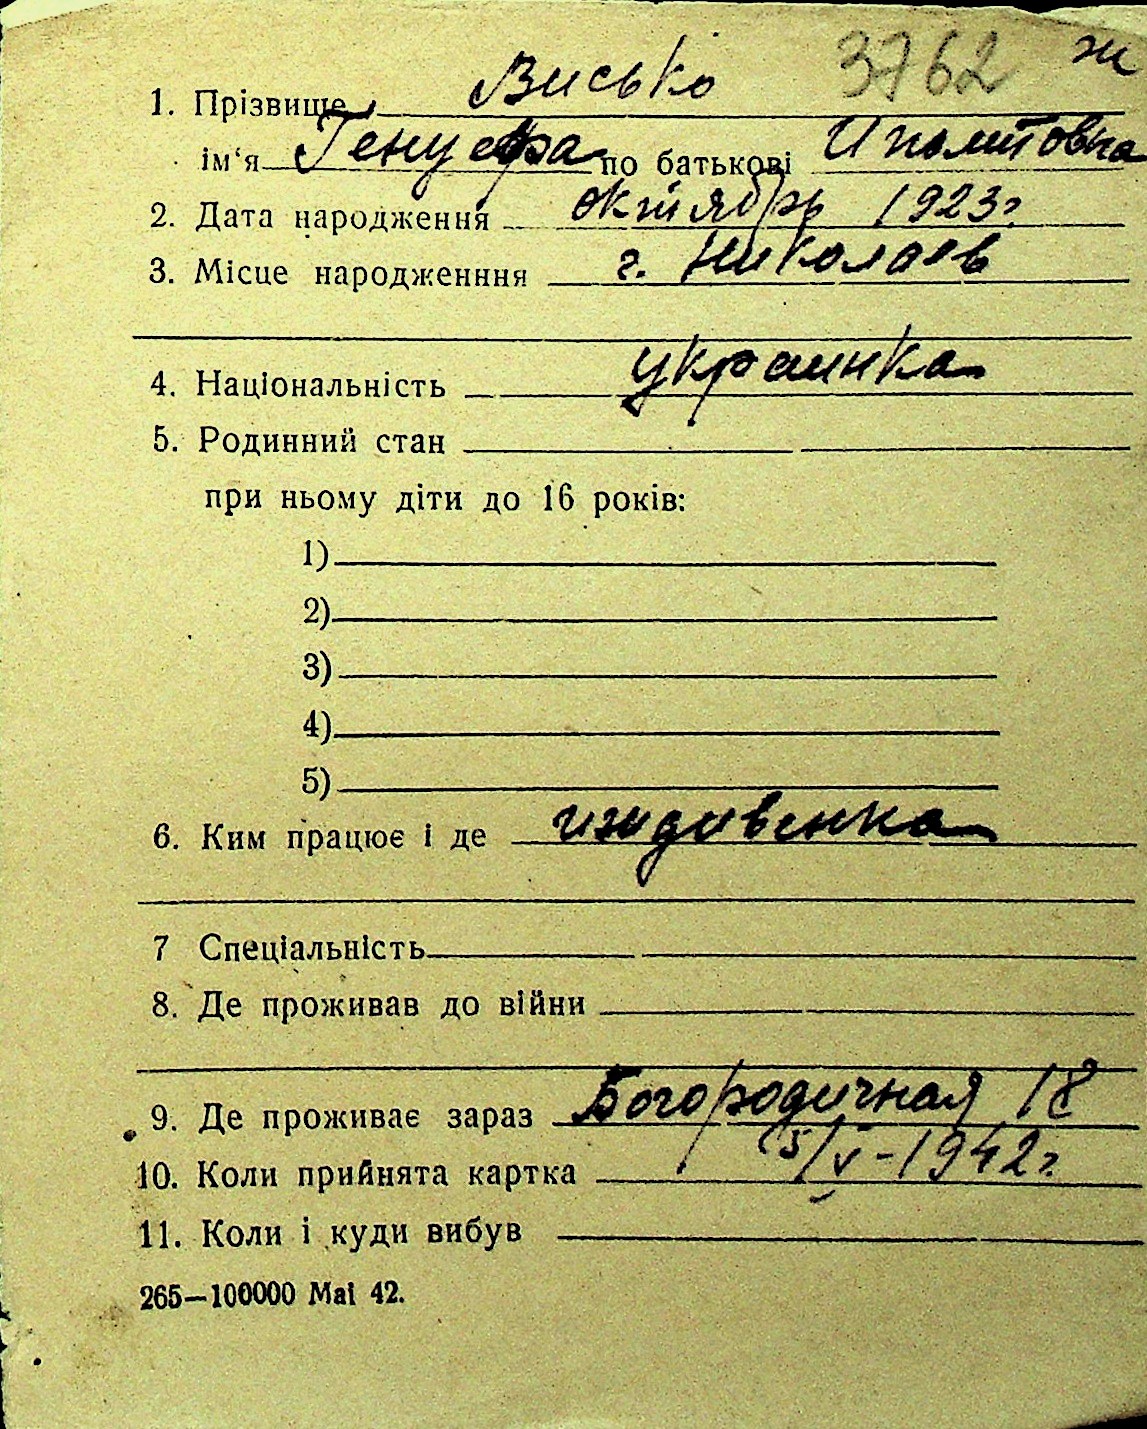 3762 ж
1. Прізвище Висько
ім‘я Генуефа по батькові Иполитовна
2. Дата народження октябрь 1923 г.
3. Місце народженння г. Николаев
4. Національність украинка
5. Родинний стан
при ньому діти до 16 років:
1)
2)
3)
4)
5)
6. Ким працює і де иждивенка
7 Спеціальність
8. Де проживав до війни
9. Де проживає зараз Богородичная 18
10. Коли прийнята картка 5/V-1942 г.
11. Коли і куди вибув
265—100000 Mai 42.